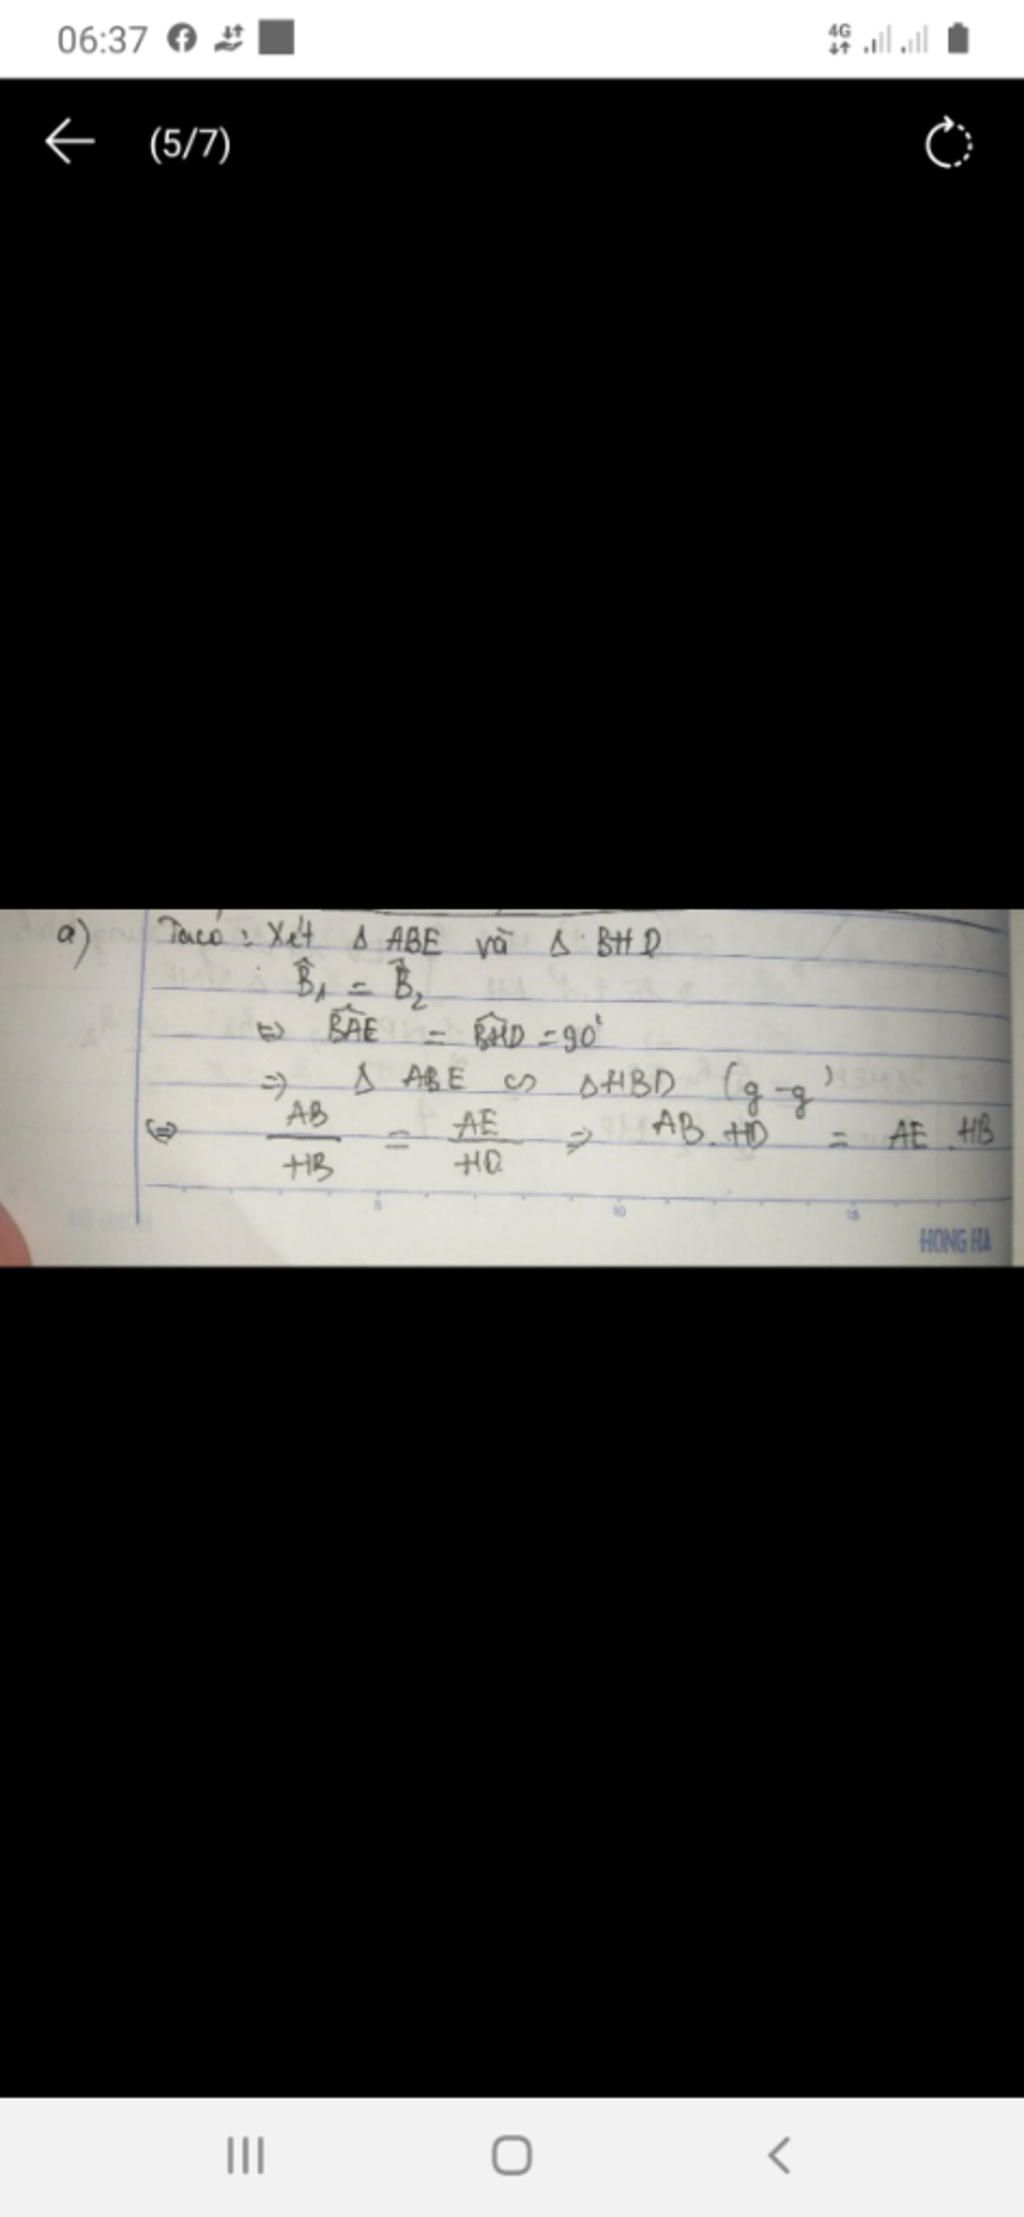 06:37
4G
(5/7)
a) Ta có : Xét Δ ABE và Δ BHD
B̂₁ = B̂₂
⇔ B̂AE = B̂HD = 90°
=> Δ ABE ∽ ΔHBD (g-g)
⇔ AB/HB = AE/HD => AB.HD = AE.HB
5 10 15
HONG HA